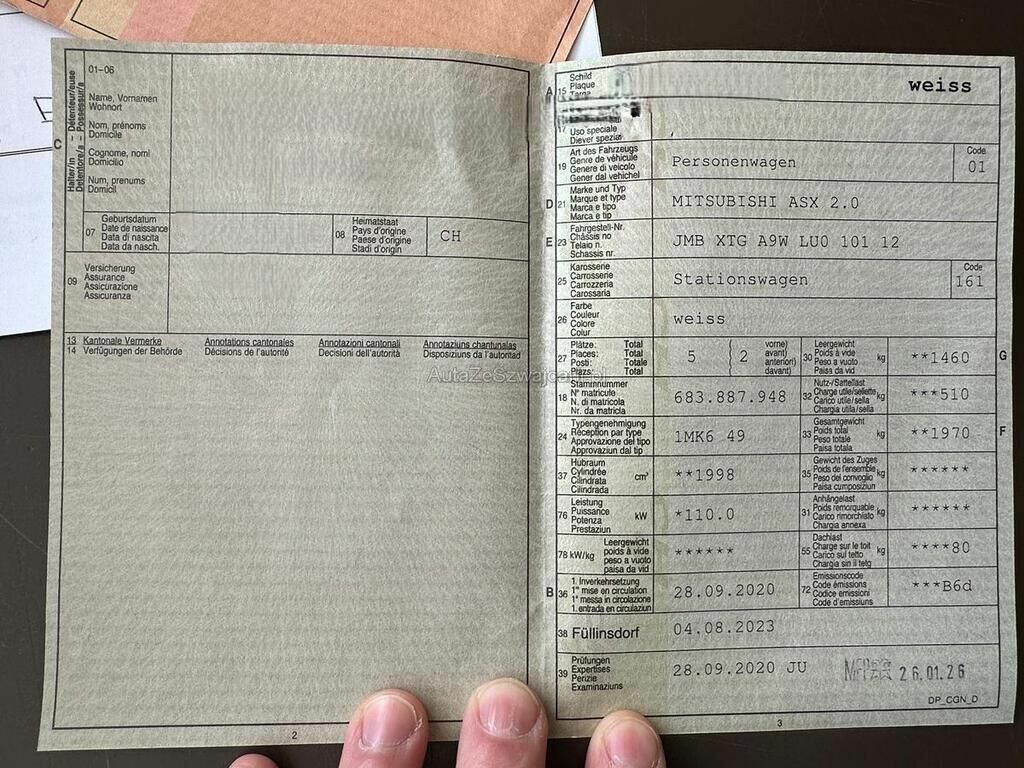 Halter/in – Détenteur/euse
Detentore/a – Possessur/a
C
01–06
Name, Vornamen
Wohnort
Nom, prénoms
Domicile
Cognome, nomi
Domicilio
Num, prenums
Domicil
07
Geburtsdatum
Date de naissance
Data di nascita
Data da nasch.
08
Heimatstaat
Pays d'origine
Paese d'origine
Stadi d'origin
CH
09
Versicherung
Assurance
Assicurazione
Assicuranza
13 Kantonale Vermerke Annotations cantonales Annotazioni cantonali Annotaziuns chantunalas
14 Verfügungen der Behörde Décisions de l'autorité Decisioni dell'autorità Disposiziuns da l'autoritad
2
A 15
Schild
Plaque
Targa
weiss
17
Uso speciale
Diever spezial
19
Art des Fahrzeugs
Genre de véhicule
Genere di veicolo
Gener dal vehichel
Personenwagen
Code
01
D 21
Marke und Typ
Marque et type
Marca e tipo
Marca e tip
MITSUBISHI ASX 2.0
E 23
Fahrgestell-Nr.
Châssis no
Telaio n.
Schassis nr.
JMB XTG A9W LU0 101 12
25
Karosserie
Carrosserie
Carrozzeria
Carossaria
Stationswagen
Code
161
26
Farbe
Couleur
Colore
Colur
weiss
27
Plätze: Total
Places: Total
Posti: Totale
Plazs: Total
5 { 2
vorne)
avant)
anteriori)
davant)
30
Leergewicht
Poids à vide
Peso a vuoto
Paisa da vid
kg
**1460
G
18
Stammnummer
N° matricule
N. di matricola
Nr. da matricla
683.887.948
32
Nutz-/Sattellast
Charge utile/sellette
Carico utile/sella
Chargia utila/sella
kg
***510
24
Typengenehmigung
Réception par type
Approvazione del tipo
Approvaziun dal tip
1MK6 49
33
Gesamtgewicht
Poids total
Peso totale
Paisa totala
kg
**1970
F
37
Hubraum
Cylindrée
Cilindrata
Cilindrada
cm³
**1998
35
Gewicht des Zuges
Poids de l'ensemble
Peso del convoglio
Paisa cumposiziun
kg
******
76
Leistung
Puissance
Potenza
Prestaziun
kW
*110.0
31
Anhängelast
Poids remorquable
Carico rimorchiato
Chargia annexa
kg
******
78 kW/kg
Leergewicht
poids à vide
peso a vuoto
paisa da vid
******
55
Dachlast
Charge sur le toit
Carico sul tetto
Chargia sin il tetg
kg
****80
B 36
1. Inverkehrsetzung
1re mise en circulation
1a messa in circolazione
1. entrada en circulaziun
28.09.2020
72
Emissionscode
Code émissions
Codice emissioni
Code d'emissiuns
***B6d
38 Füllinsdorf
04.08.2023
39
Prüfungen
Expertises
Perizie
Examinaziuns
28.09.2020 JU
26.01.26
DP_CGN_D
3
AutaZeSzwajcarii.pl